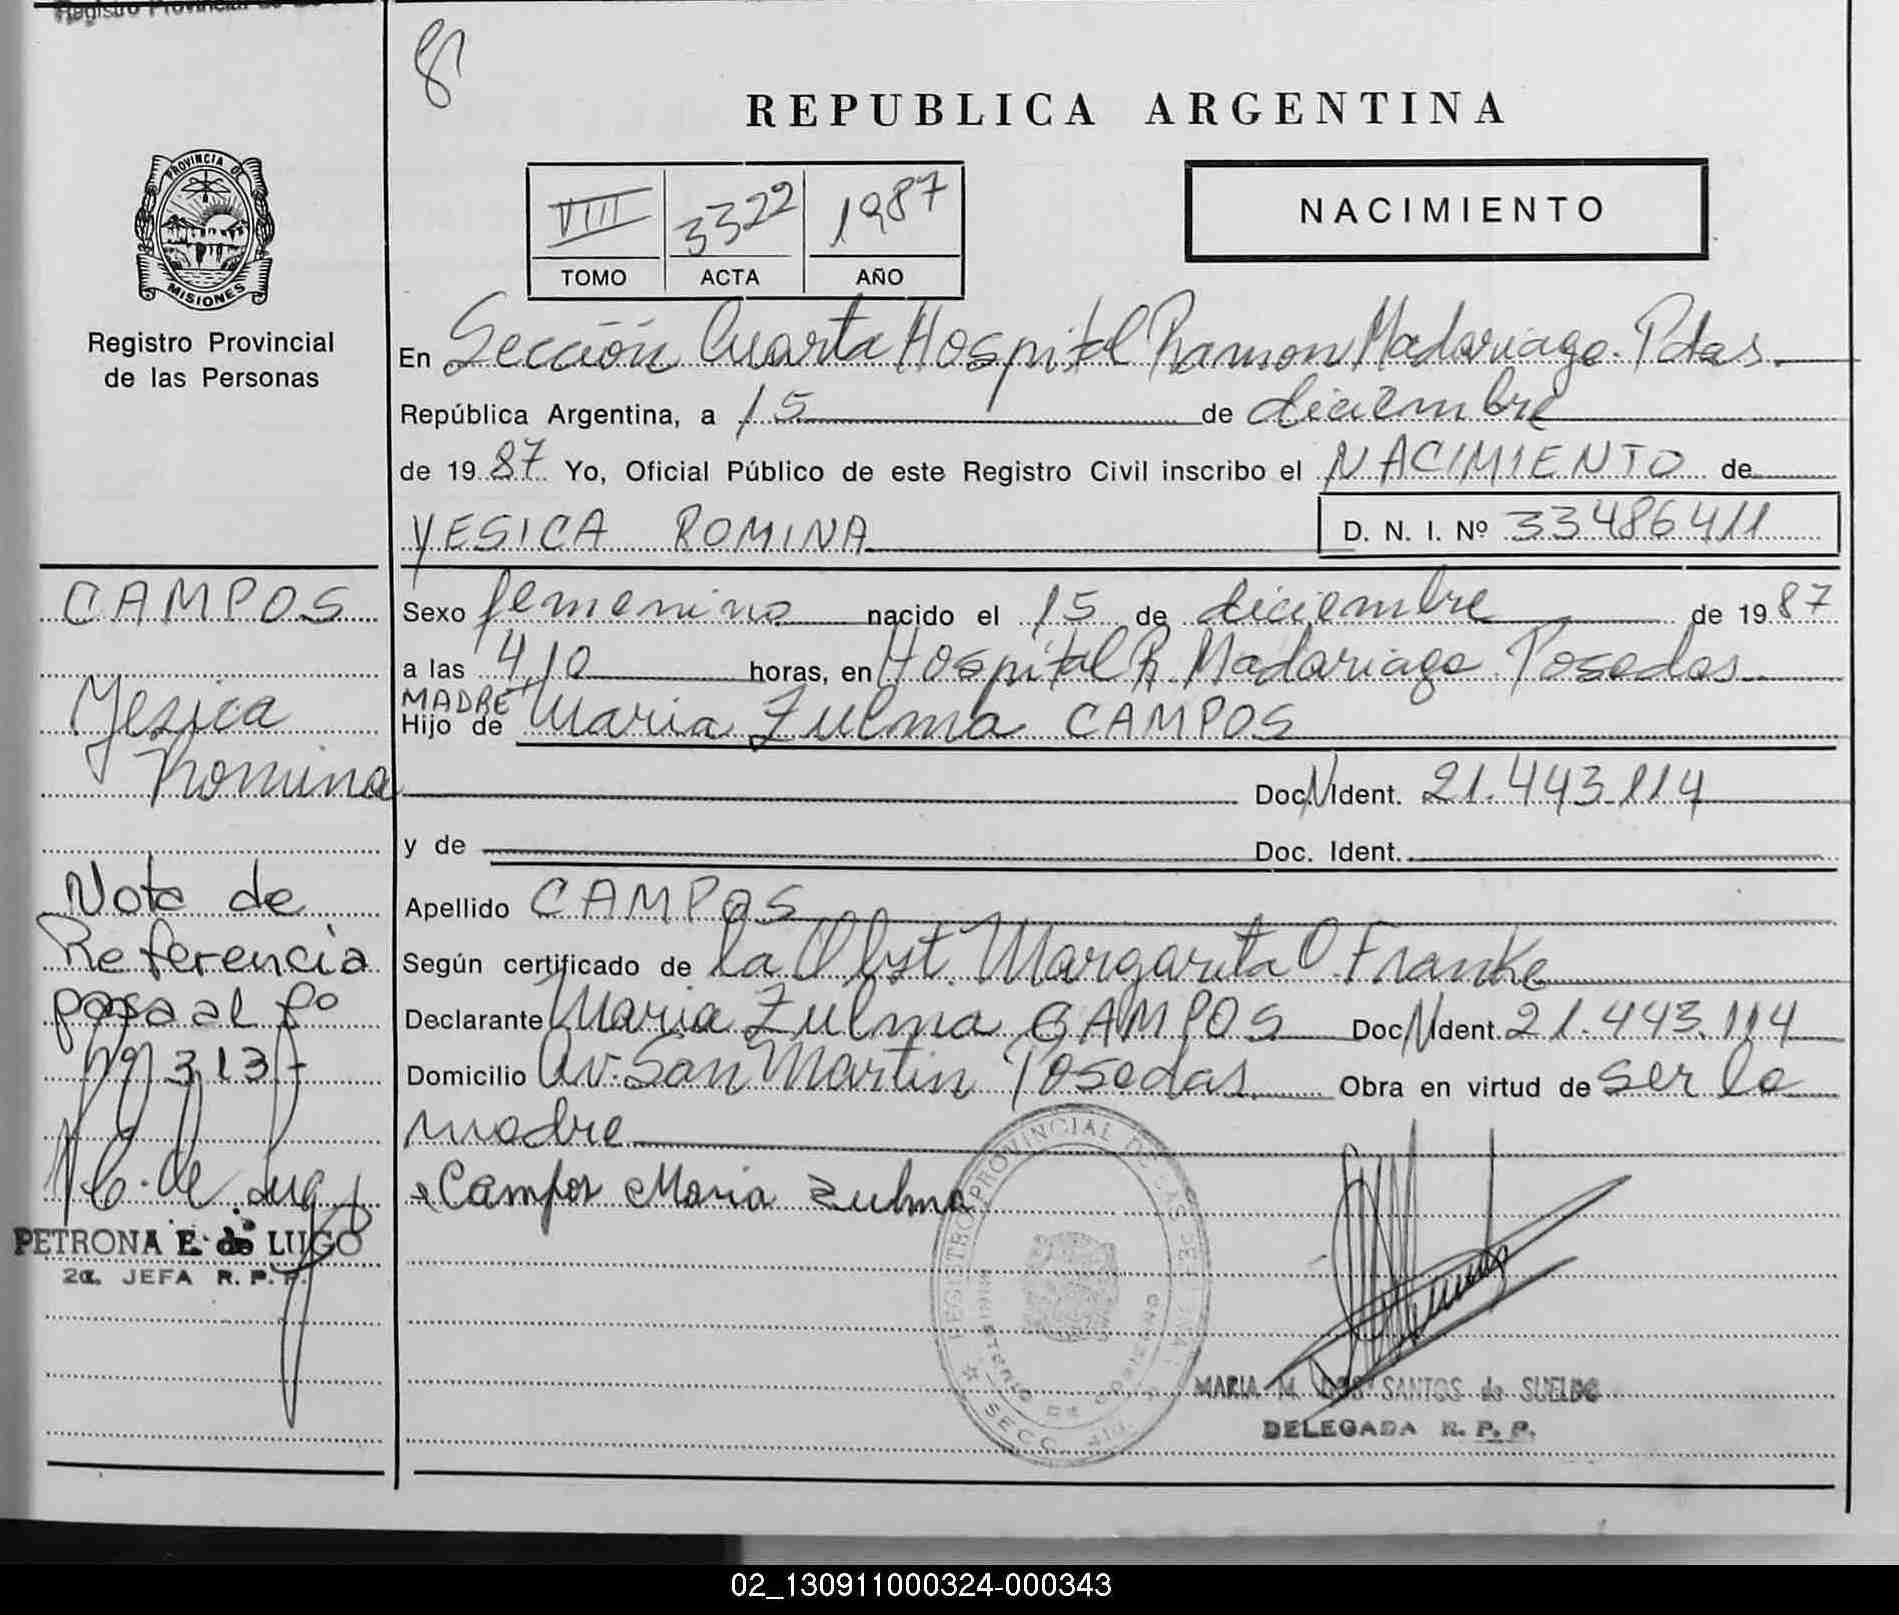 8
REPUBLICA ARGENTINA
PROVINCIA DE
MISIONES
Registro Provincial
de las Personas
VIII 3322 1987
TOMO ACTA AÑO
NACIMIENTO
En Sección Cuarta Hospital Ramon Madariaga. Pdas.
República Argentina, a 15 de diciembre
de 1987 Yo, Oficial Público de este Registro Civil inscribo el NACIMIENTO de
YESICA ROMINA
D. N. I. Nº 33486411
CAMPOS
Yesica
Romina
Sexo femenino nacido el 15 de diciembre de 1987
a las 4,10 horas, en Hospital R. Madariaga Posadas
MADRE
Hijo de Maria Zulma CAMPOS
Doc. N Ident. 21.443.114
y de Doc. Ident.
Apellido CAMPOS
Según certificado de la Obst. Margarita O. Franke
Declarante Maria Zulma CAMPOS Doc. N Ident. 21.443.114
Domicilio Av. San Martin Posadas Obra en virtud de ser la
madre
Campos Maria Zulma
Nota de
Referencia
pasa al fº
313
PETRONA E. de LUGO
2a. JEFA R. P. P.
REGISTRO PROVINCIAL DE LAS PERSONAS
MINISTERIO DE GOBIERNO
SECC. 4ta.
MARIA M. DOS SANTOS de SUELDO
DELEGADA R. P. P.
02_130911000324-000343